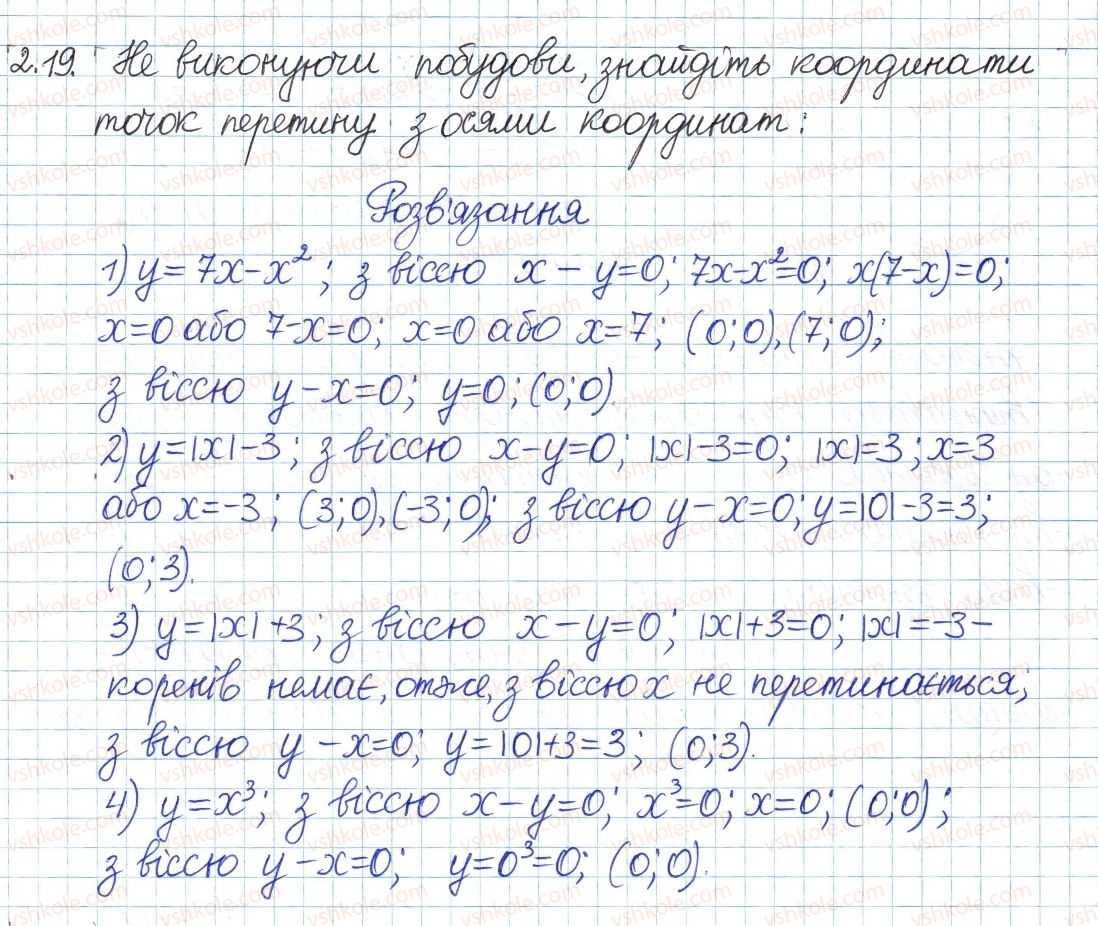 2.19. Не виконуючи побудови, знайдіть координати
точок перетину з осями координат:
Розв'язання
1) y = 7x - x²; з віссю x - y=0; 7x-x²=0; x(7-x)=0;
x=0 або 7-x=0; x=0 або x=7; (0;0),(7;0);
з віссю y - x=0; y=0; (0;0).
2) y=|x|-3; з віссю x-y=0; |x|-3=0; |x|=3; x=3
або x=-3; (3;0),(-3;0); з віссю y-x=0; y=|0|-3=3;
(0;3).
3) y=|x|+3; з віссю x-y=0; |x|+3=0; |x|=-3-
коренів немає, отже, з віссю x не перетинається;
з віссю y - x=0; y=|0|+3=3; (0;3).
4) y=x³; з віссю x-y=0; x³=0; x=0; (0;0);
з віссю y-x=0; y=0³=0; (0;0).